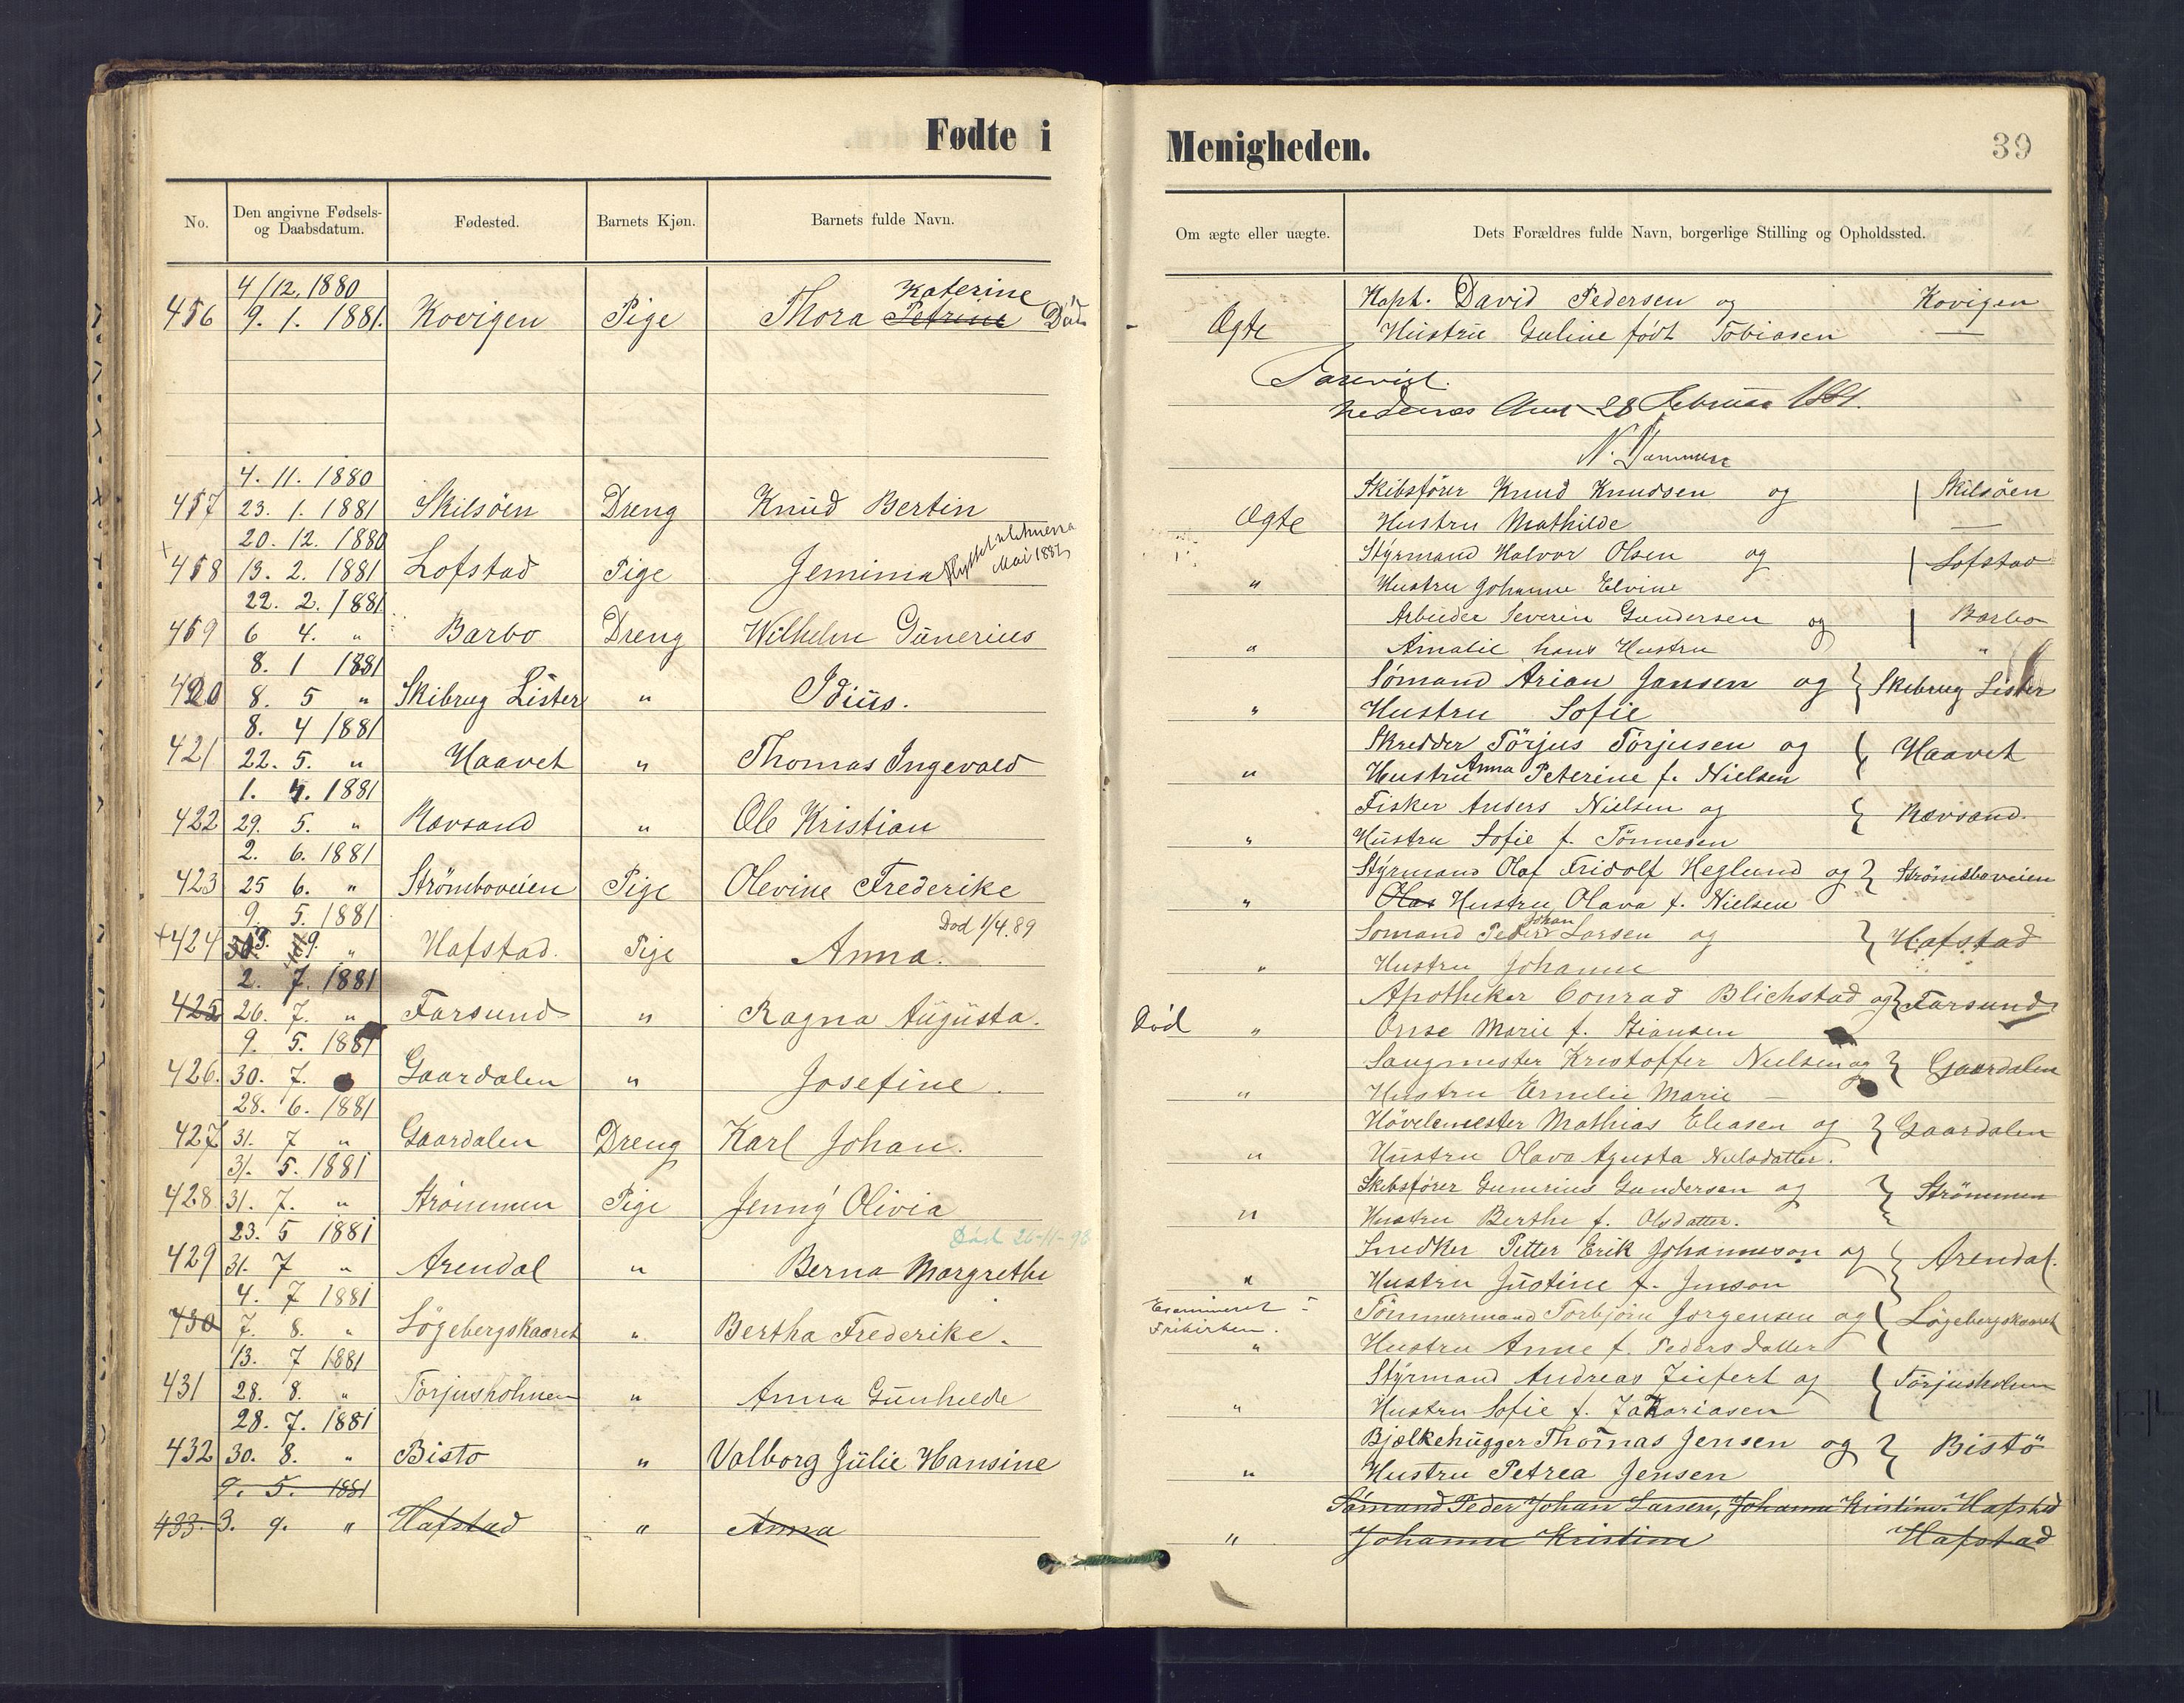 Fødte i
Menigheden.
39
No.
Den angivne Fødsels-
og Daabsdatum.
Fødested.
Barnets Kjøn.
Barnets fulde Navn.
Om ægte eller uægte.
Dets Forældres fulde Navn, borgerlige Stilling og Opholdssted.
4/12, 1880 Katerine Kapt. David Pedersen og Kovigen
416 9. 1. 1881. Kovigen Pige Thora Petrine Død Ægte Hustru Guline født Tobiasen —
Nedenæs Amt 28 Februar 1881.
4. 11. 1880 Skibsfører Knud Knudsen og Skilsöen
417 23. 1. 1881 Skilsöen Dreng Knud Bertin Ægte Hustru Mathilde —
20. 12. 1880 Styrmand Halvor Olsen og Lofstad
418 13. 2. 1881 Lofstad Pige Jemima Mai 1882 " Hustru Johanne Elvine
22. 2. 1881 Arbeider Severin Gundersen og Barbo
419 6 4. " Barbo Dreng Wilhelm Gunerius " Amalie hans Hustru "
8. 1 1881 Sømand Arian Jansen og Skibrug Lister
420 8. 5 " Skibrug Lister " Idius. " Hustru Sofie
8. 4 1881 Skredder Törjus Torjusen og Haavet
421 22. 5. " Haavet " Thomas Ingevald " Hustru Anna Peterine f. Nielsen
1. 4. 1881 Fisker Anders Nielsen og Rævsand.
422 29. 5. " Rævsand " Ole Kristian " Hustru Sofie f. Tönnesen
2. 6. 1881 Styrmand Olaf Fridolf Heglund og Strömsboveien
423 25 6. " Strömboveien Pige Olevine Frederike " Olas Hustru Olava f. Nielsen
9. 5. 1881 Død 1/4.89 Sømand Peder Johan Larsen og Hafstad
424 3. 9. " Hafstad. Pige Anna. " Hustru Johanne
2. 7. 1881 Apotheker Conrad Blichstad og Farsund
425 26. 7. " Farsund " Ragna Augusta. Död " Onse Marie f. Stiansen
9. 5. 1881 Saugmester Kristoffer Nielsen og Gaardalen
426. 30. 7. Gaardalen " Josefine. " Hustru Emelie Marie —
28. 6. 1881 Hövelemester Mathias Eleasen og Gaardalen
427 31. 7 " Gaardalen Dreng Karl Johan. " Hustru Olava Agusta Nielsdatter.
31. 5. 1881 Skibsfører Gunerius Gundersen og Strömmen
428 31. 7. " Strömmen Pige Jenny Olivia " Hustru Berthe f. Olsdatter.
23. 5 1881 Död 26-11-98 Snedker Petter Erik Johanneson og Arendal.
429 31. 7 " Arendal " Berna Margrethe " Hustru Justine f. Jonson
4. 7 1881 Examineret i Tömmermand Torbjörn Jorgensen og Lögebergskaaret
430 7. 8. " Lögebergskaaret " Bertha Frederike. Frikirken. " Hustru Anne f. Pedersdatter
13. 7 1881 Styrmand Andreas Ziefert og Törjusholmen
431 28. 8. " Törjusholmen " Anna Gunhilde " Hustru Sofie f. Zakariasen
28. 7. 1881 Bjælkehugger Thomas Jensen og Bistö
432 30. 8. " Bisto " Valborg Julie Hansine " Hustru Petrea Jensen
9. 5. 1881 Sömand Peder Johan Larsen, Johanne Kristine Hafstad
433. 3. 9. " Hafstad " Anna " Johanne Kristine Hafstad